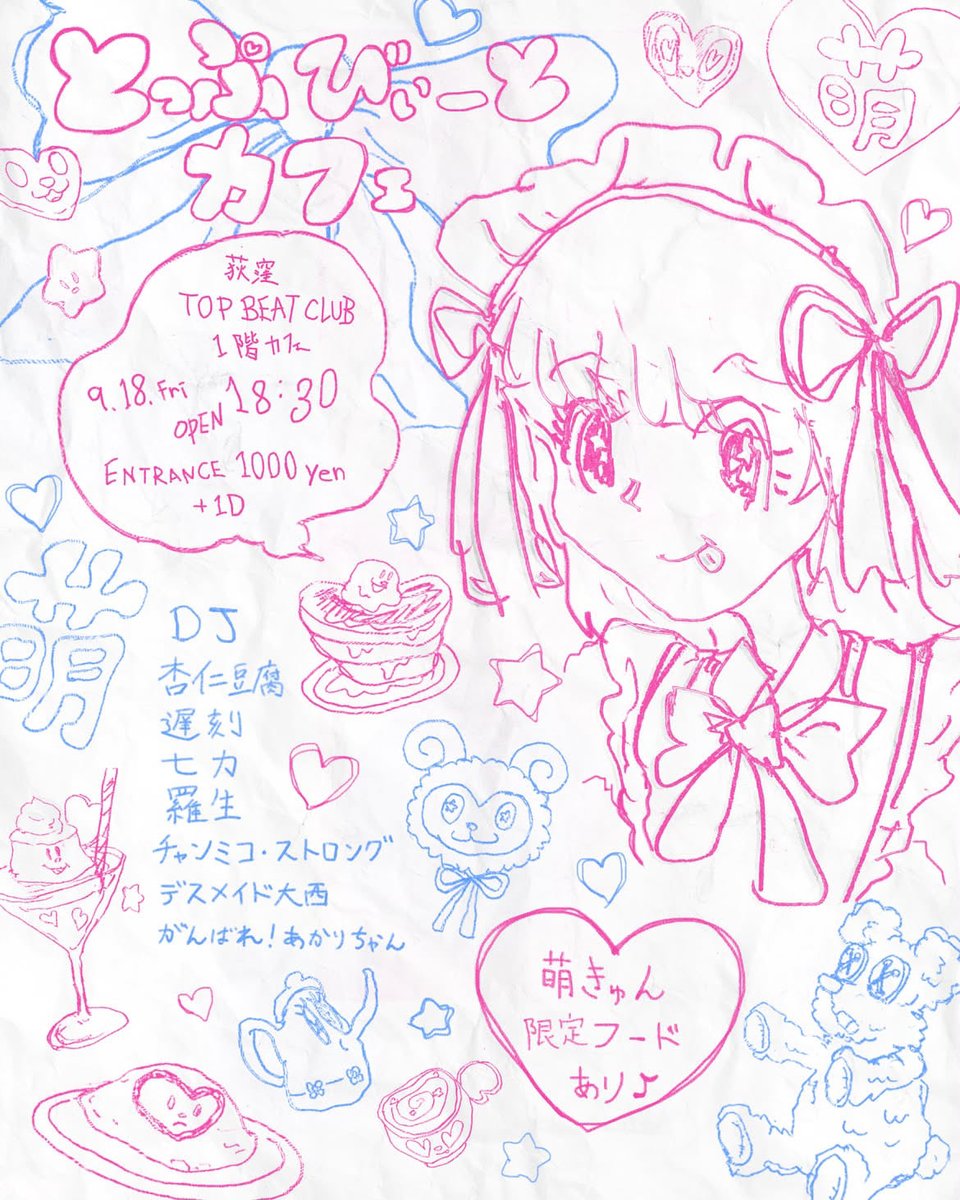 とっぷびぃーと
カフェ
萌
荻窪
TOP BEAT CLUB
1階カフェ
9.18.Fri
OPEN 18:30
ENTRANCE 1000 yen
+1D
萌
DJ
杏仁豆腐
遅刻
七力
羅生
チャンミコ・ストロング
デスメイド大西
がんばれ!あかりちゃん
萌きゅん
限定フード
あり♪